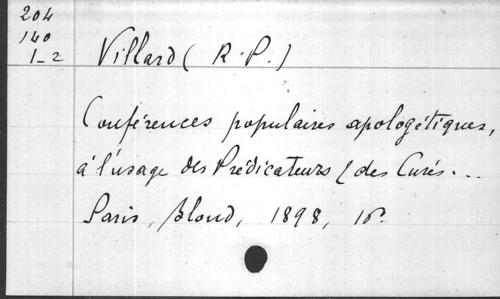 204
140
1-2
Villard (R.P.)
Conférences populaires apologétiques,
à l'usage des Prédicateurs / des Curés...
Paris, Bloud, 1898, 16°.